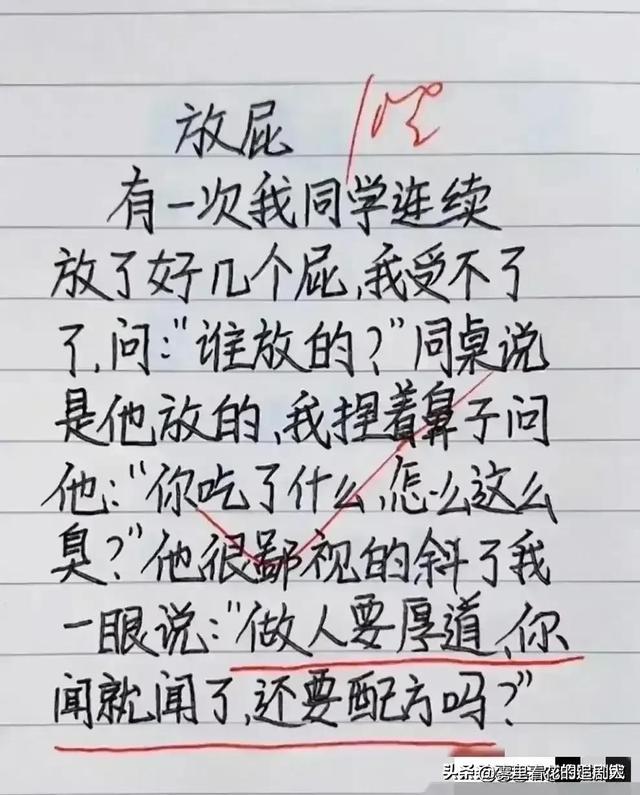 放屁
有一次我同学连续
放了好几个屁,我受不了
了,问:"谁放的?"同桌说
是他放的,我捏着鼻子问
他:"你吃了什么,怎么这么
臭?"他很鄙视的斜了我
一眼说:"做人要厚道,你
闻就闻了,还要配方吗?"